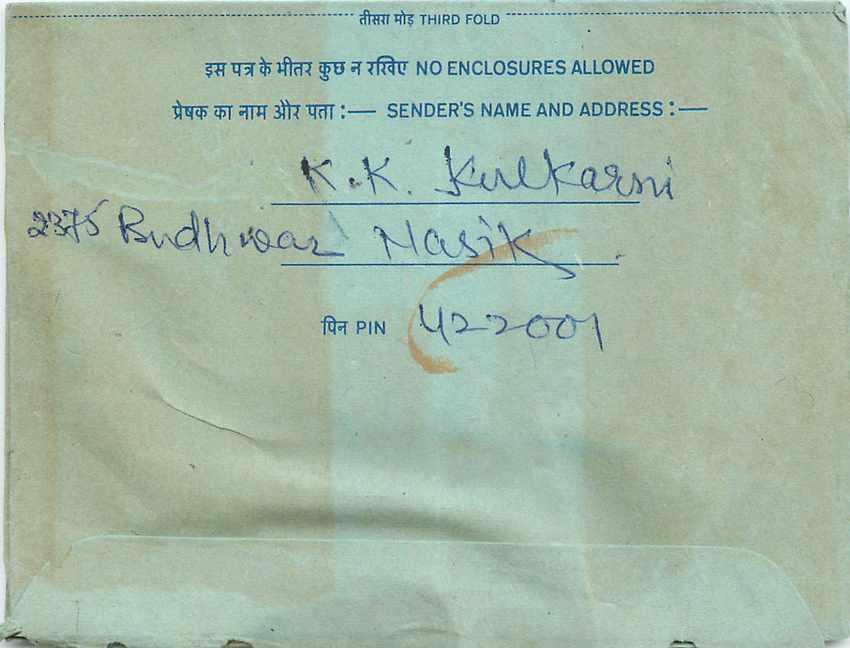 तीसरा मोड़ THIRD FOLD
इस पत्र के भीतर कुछ न रखिए NO ENCLOSURES ALLOWED
प्रेषक का नाम और पता :— SENDER'S NAME AND ADDRESS :—
K.K. Kulkarni
2375 Budhwar Nasik
पिन PIN 422001